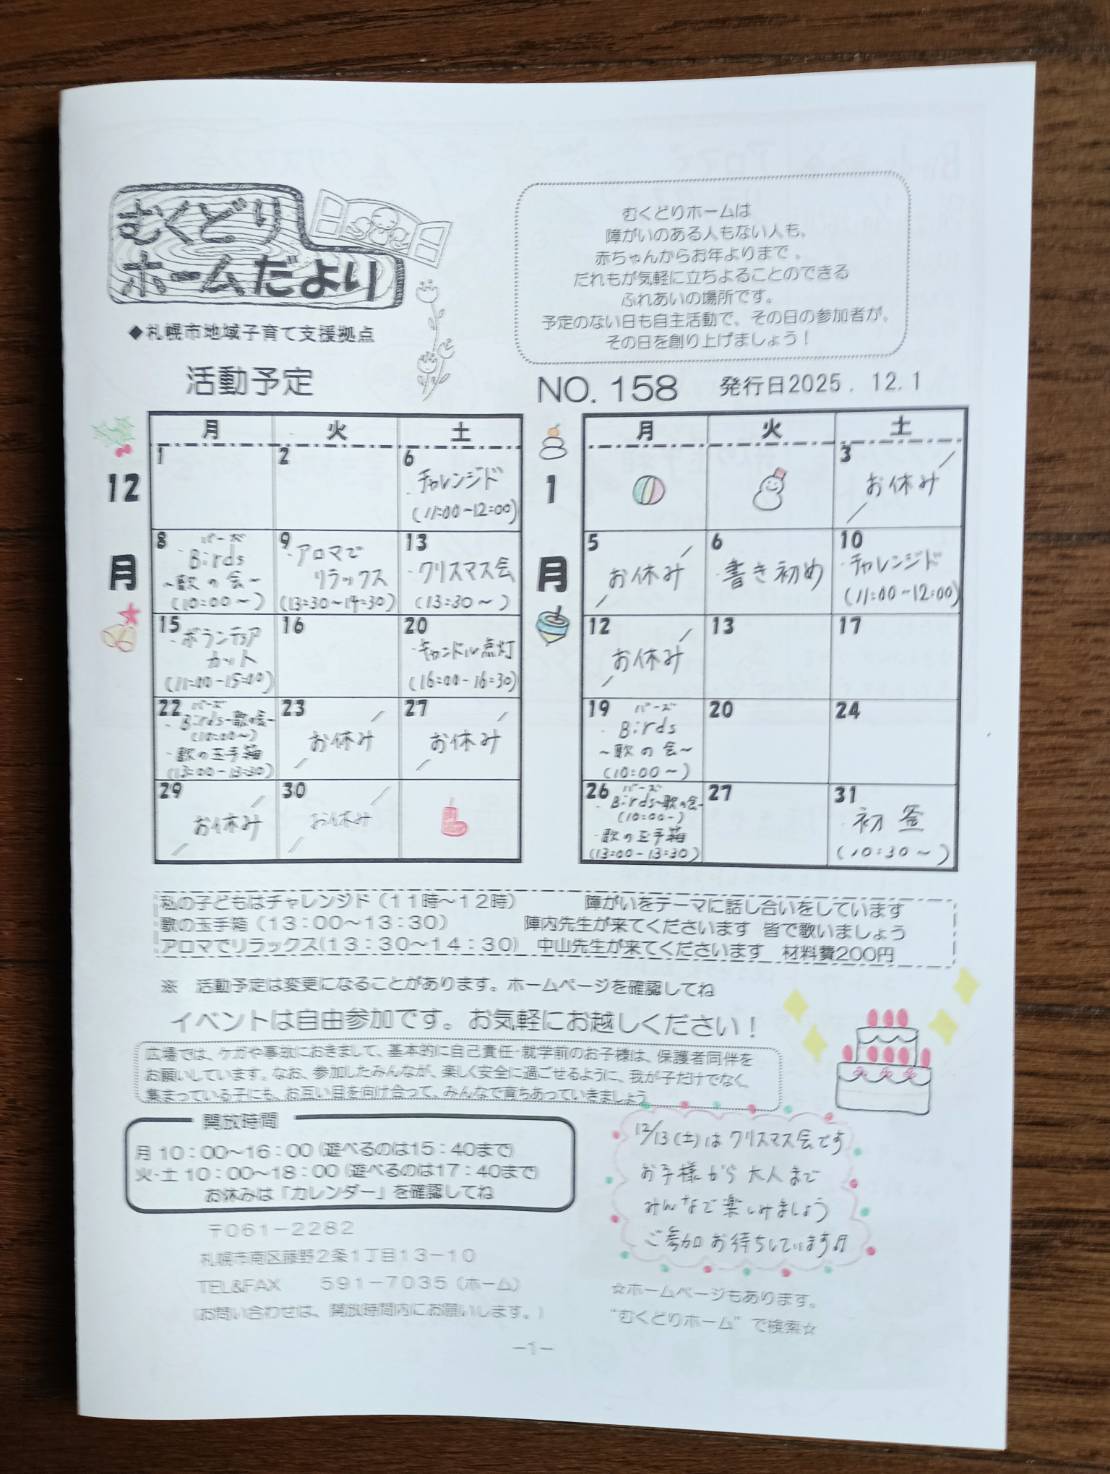 むくどり
ホームだより
◆札幌市地域子育て支援拠点
むくどりホームは
障がいのある人もない人も、
赤ちゃんからお年よりまで、
だれもが気軽に立ちよることのできる
ふれあいの場所です。
予定のない日も自主活動で、その日の参加者が、
その日を創り上げましょう！
活動予定
NO. 158 発行日2025. 12.1
12月
月 火 土
1 2 6
・チャレンジド
(11:00~12:00)
8 9 13
バーズ
・Birds
~歌の会~
(10:00~)
・アロマで
リラックス
(13:30~14:30)
・クリスマス会
(13:30~)
15 16 20
・ボランティア
カット
(11:00-15:00)
・キャンドル点灯
(16:00-16:30)
22 23 27
バーズ
・Birds-歌の会-
(10:00~)
・歌の玉手箱
(13:00-13:30)
お休み
お休み
29 30
お休み
お休み
1月
月 火 土
3
お休み
5 6 10
お休み
・書き初め
・チャレンジド
(11:00~12:00)
12 13 17
お休み
19 20 24
バーズ
・Birds
~歌の会~
(10:00~)
26 27 31
バーズ
・Birds~歌の会-
(10:00-)
・歌の玉手箱
(13:00-13:30)
初釜
(10:30~)
私の子どもはチャレンジド（１１時～１２時） 障がいをテーマに話し合いをしています
歌の玉手箱（１３：００～１３：３０） 陣内先生が来てくださいます 皆で歌いましょう
アロマでリラックス(１３：３０～１４：３０) 中山先生が来てくださいます 材料費200円
※ 活動予定は変更になることがあります。ホームページを確認してね
イベントは自由参加です。お気軽にお越しください！
広場では、ケガや事故におきまして、基本的に自己責任・就学前のお子様は、保護者同伴を
お願いしています。なお、参加したみんなが、楽しく安全に過ごせるように、我が子だけでなく、
集まっている子にも、お互い目を向け合って、みんなで育ちあっていきましょう
開放時間
月 10：00～16：00 (遊べるのは15：40まで)
火・土 10：00～18：00 (遊べるのは17：40まで)
お休みは「カレンダー」を確認してね
12/13(土)は クリスマス会です
お子様から 大人まで
みんなで楽しみましょう
ご参加お待ちしています♫
〒061－2282
札幌市南区藤野２条１丁目１３－１０
TEL&FAX ５９１－７０３５（ホーム）
(お問い合わせは、開放時間内にお願いします。)
☆ホームページもあります。
“むくどりホーム”で検索☆
－1－